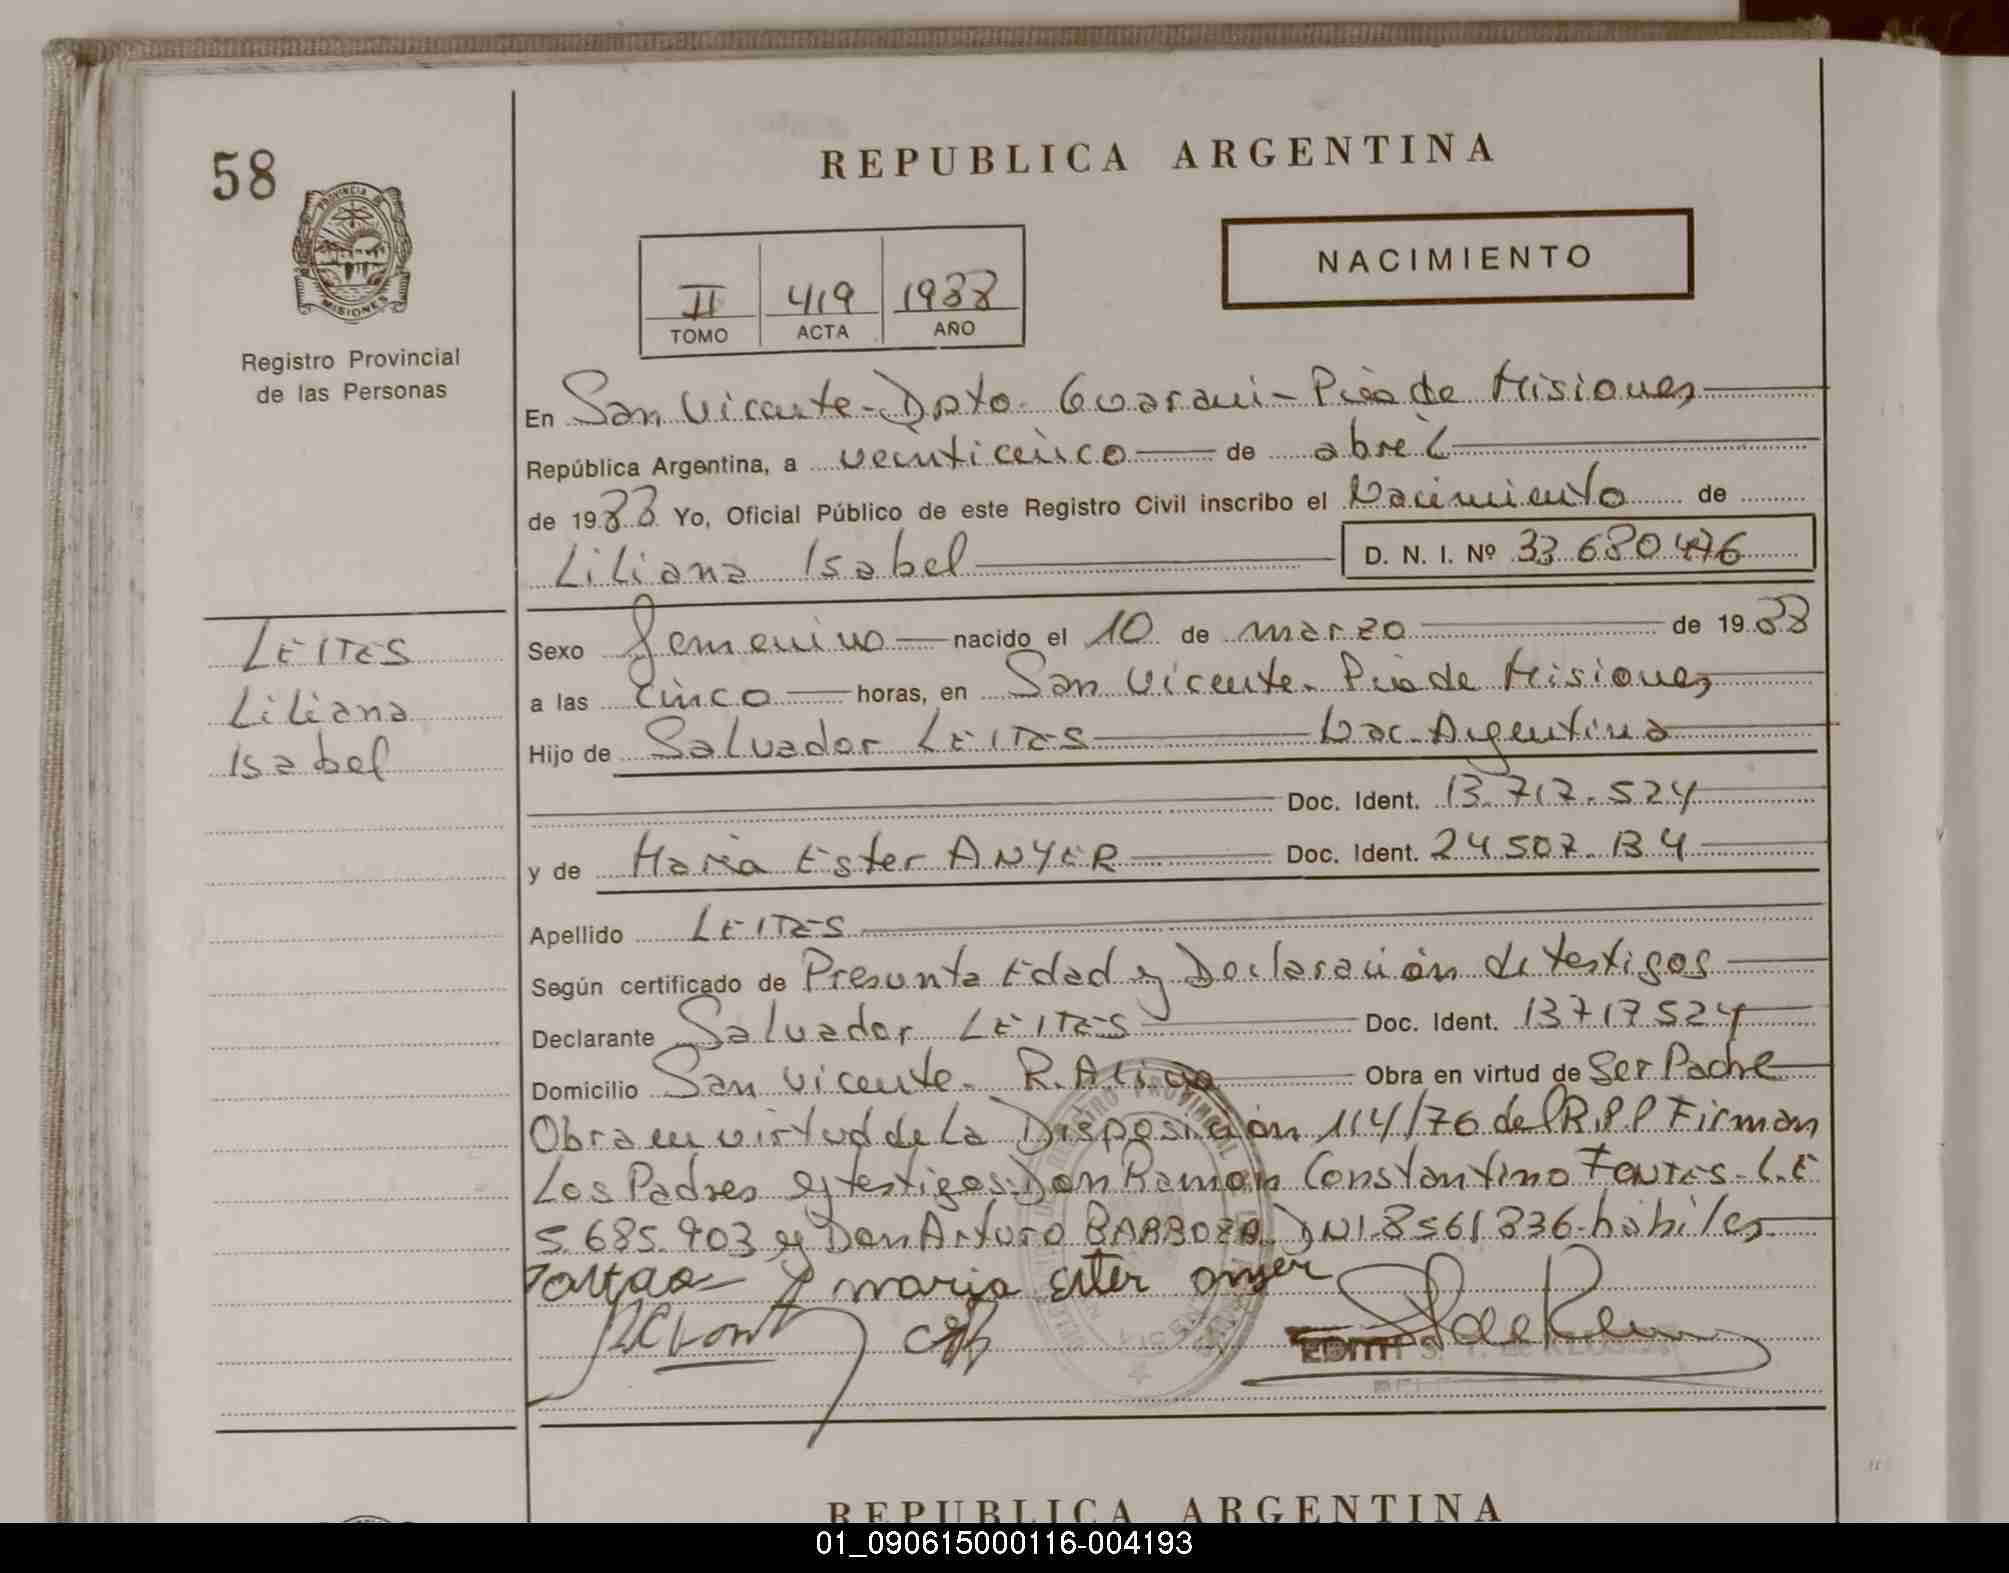 58
PROVINCIA DE
MISIONES
Registro Provincial
de las Personas
REPUBLICA ARGENTINA
NACIMIENTO
II 419 1988
TOMO ACTA AÑO
En San Vicente - Dpto. Guarani - Pcia de Misiones
República Argentina, a veinticinco de abril
de 1988 Yo, Oficial Público de este Registro Civil inscribo el Nacimiento de
Liliana Isabel D. N. I. Nº 33 680 476
LEITES
Liliana
Isabel
Sexo Femenino nacido el 10 de marzo de 1988
a las cinco horas, en San Vicente. Pcia de Misiones
Hijo de Salvador LEITES Nac. Argentina
Doc. Ident. 13.717.524
y de Maria Ester ANYER Doc. Ident. 24 507. 134
Apellido LEITES
Según certificado de Presunta Edad y Declaración de testigos
Declarante Salvador LEITES Doc. Ident. 13717524
Domicilio San Vicente. Obra en virtud de Ser Padre
Obra en virtud de La Disposición 114/76 del R.P.P Firman
Los Padres y testigos: Don Ramon Constantino FONTES - L.E
5.685.903 y Don Arturo BARBOZA. DNI. 8561836 - habiles
maria ester anyer
EDITH
REPUBLICA ARGENTINA
01_090615000116-004193